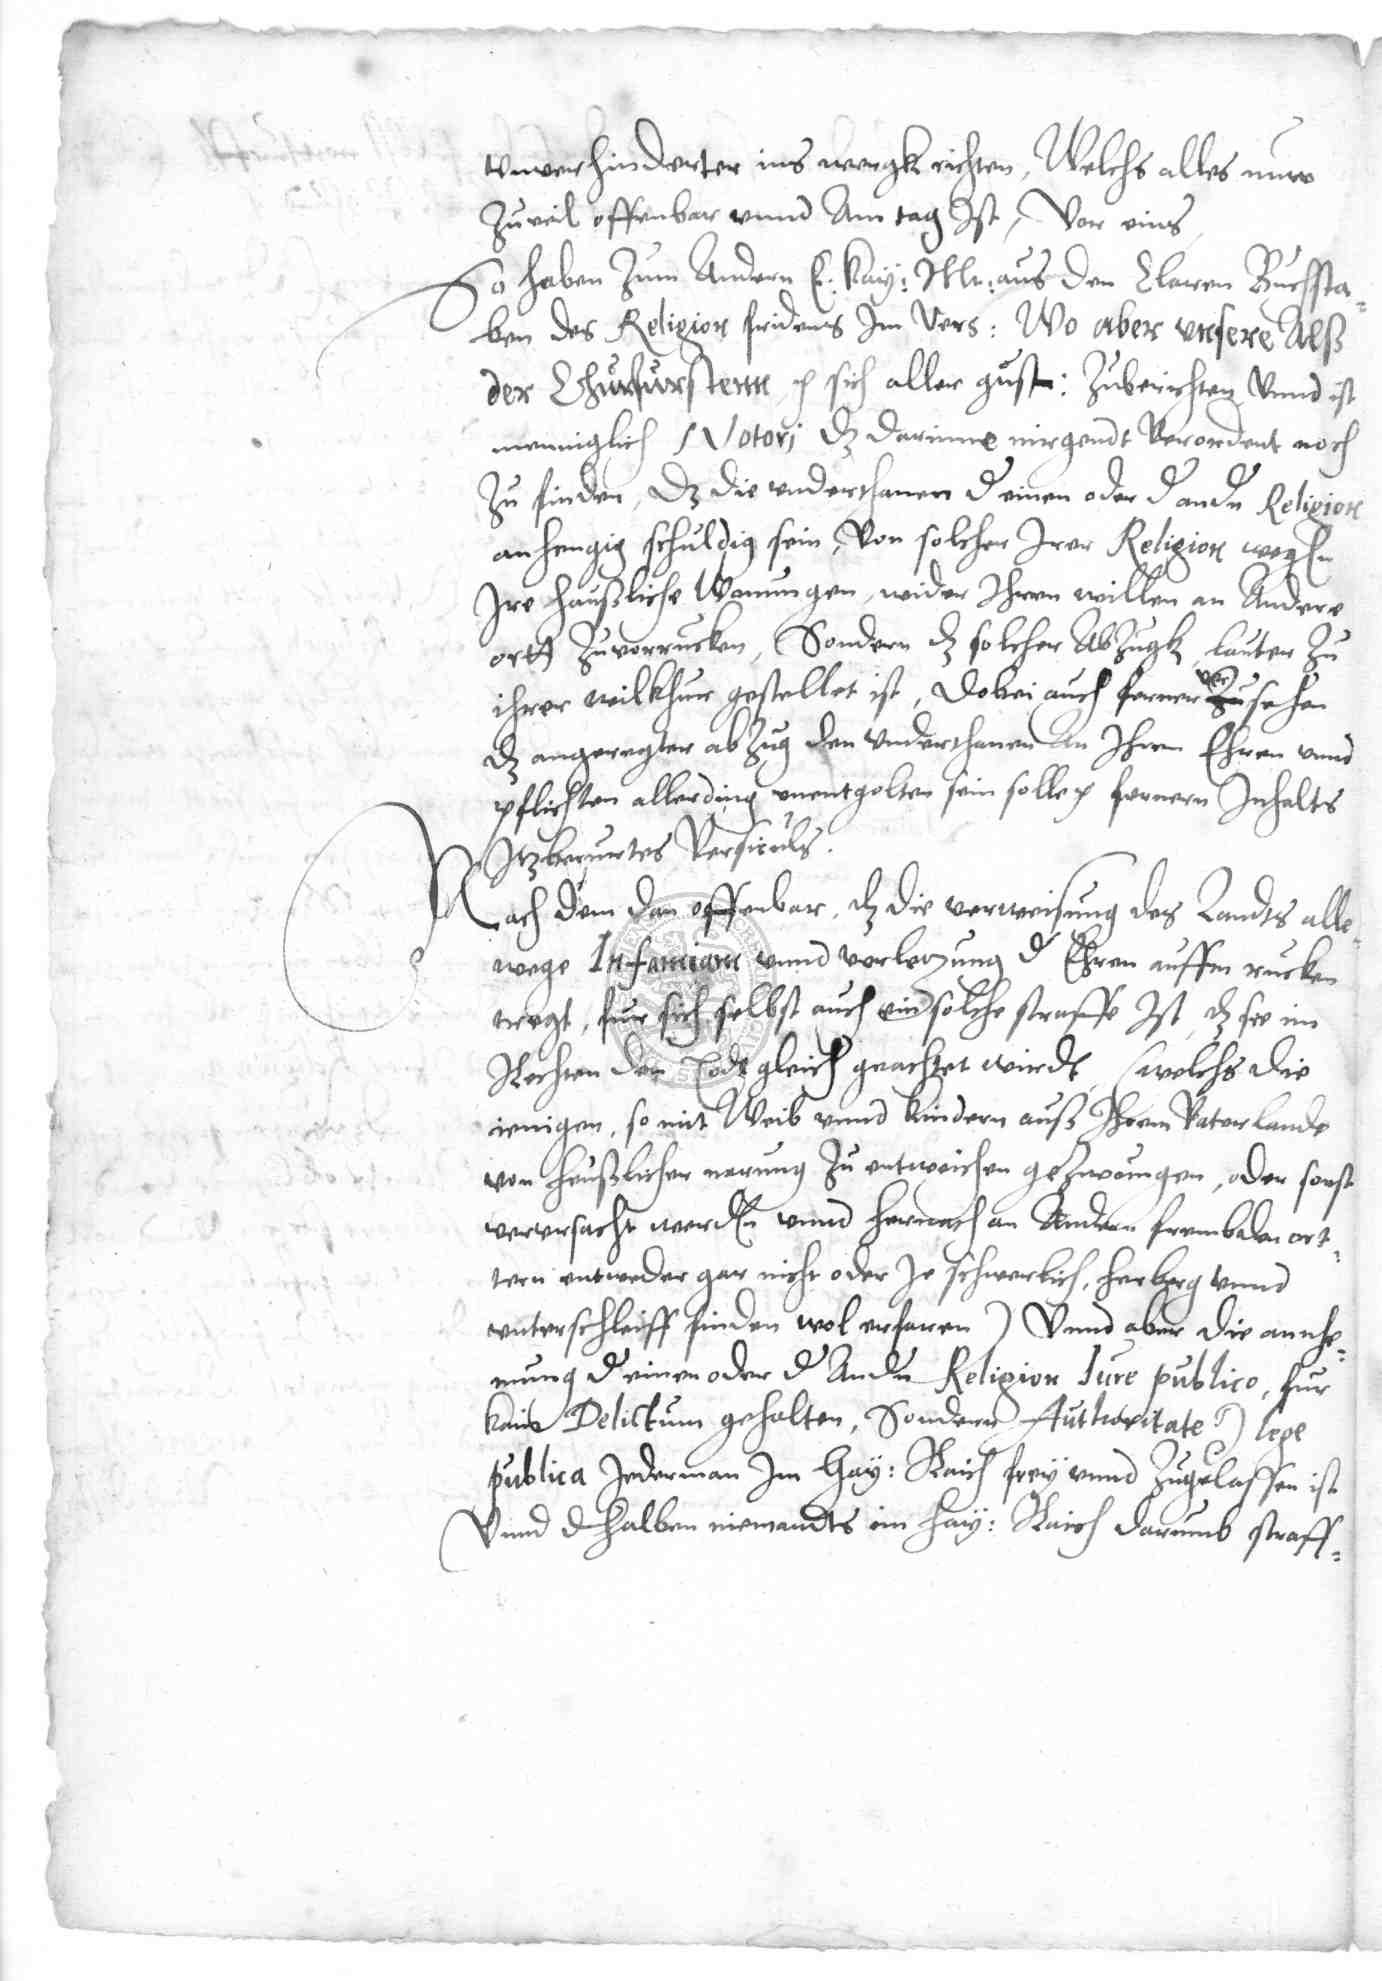 vnverhinderter ins wergk richten, Welchs alles nun
Zuveil offenbar vnnd Am tag Ist, Vor eins,
So haben Zum Andern E: Kay: Mt: aus den Claren Buchsta-
ben des Religion fridens Im Vers: Wo aber vnsere Alß
der Churfurstenn, sich aller gnst: Zuberichten, Vnnd ist
menniglich Notorj dz darinne nirgendt Verordent noch
Zu finden, Dz die vnderthanen d einen oder d andn Religion
anhengig schuldig sein, Von solcher Irer Religion wegen
Ire haußliche Wonungen, wider Ihren willen an Andere
ortt Zuvorrucken, Sondern dz solcher AbZugk, lauter Zu
ihrer wilkhur gestellet ist, Dobei auch ferner versehen
dz angeregter abZug den vnderthanen An Ihren Ehren vnnd
pflichten allerding vnentgolten sein solle fernern Inhalts
Itzberurtes Versiculs.
Nach dem dan offenbar, dz die verweisung des Landts alle-
wege Infamiam vnnd verletzung d Ehren auffm rucken
tregt, fur sich selbst auch ein solche straffe Ist, dz sie im
Rechten dem Todt gleich geachtet wirdt, (welchs die
ienigen, so mit Weib vnnd Kindern auß Ihrem Vaterlande
von heußlicher narung Zu entweichen geZwoungen, oder sonst
verursacht werden vnnd hernach an Andern frembden ort-
tern entweder gar nicht oder Je schwerlich, herberg vnnd
vnterschleiff finden wol erfaren) Vnnd aber die anneh-
mung d einen oder d Andn Religion Iure publico, fur
kain Delictum gehalten, Sondern Authoritate et lege
publica Jederman Im Hay: Raich frey vnnd Zugelassen ist
Vnnd dhalben niemandts im Hay: Raich darumb straff-